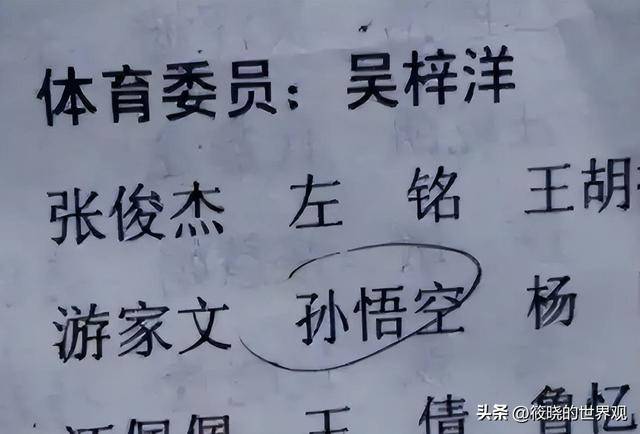 体育委员：吴梓洋
张俊杰 左 铭 王胡
游家文 孙悟空 杨
佩佩 王 倩 鲁忆
头条 @筱晓的世界观